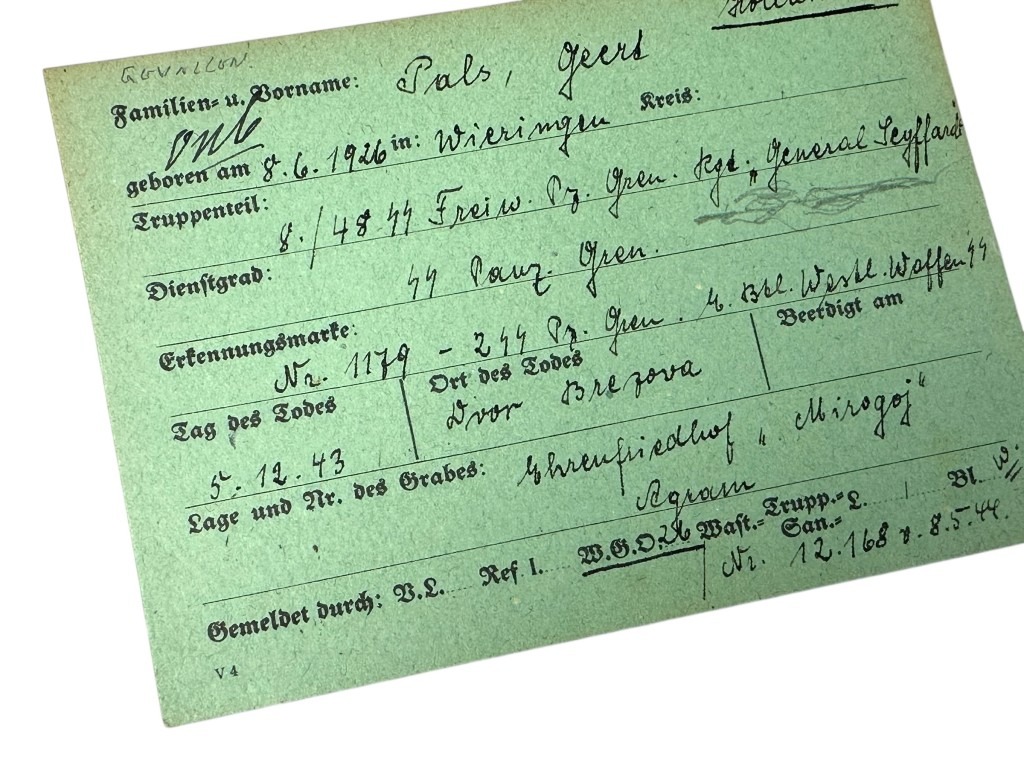 Familien= u. Vorname: Pals, Geert
geboren am 8.6.1926 in: Wieringen Kreis:
Truppenteil:
8./48 ϟϟ Freiw. Pz. Gren. Rgt. „General Seyffardt
Dienstgrad:
ϟϟ Panz. Gren.
Erkennungsmarke:
Nr. 1179 - 2 ϟϟ Pz. Gren. E. Btl. Westl. Waffen ϟϟ
Tag des Todes Ort des Todes Beerdigt am
5.12.43 Dvor Brezova
Lage und Nr. des Grabes: Ehrenfriedhof „Mirogoj“
Agram
Gemeldet durch: V.L. Ref. I. W.G.O. 26 Wast.= Trupp.= San.= L. Bl. W.
Nr. 12.168 v. 8.5.44.
V 4